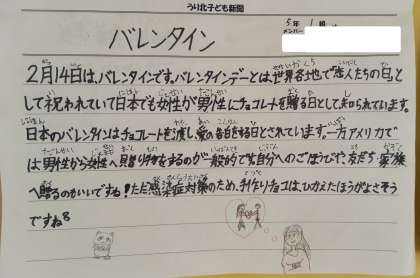 うり北子ども新聞
5年1組
メンバー
バレンタイン
2月14日は、バレンタインです。バレンタインデーとは、世界各地で「恋人たちの日」と
して祝われていて日本でも女性が男性にチョコレートを贈る日として、知られています。
日本のバレンタインはチョコレートを渡し、愛の告白をする日とされています。一方アメリカで
は男性から女性へ贈り物をするのが一般的です。自分へのごほうびや、友だち・家族
へ贈るのもいいですね!ただ感染症対策のため、手作りチョコは、ひかえたほうがよさそう
ですね。